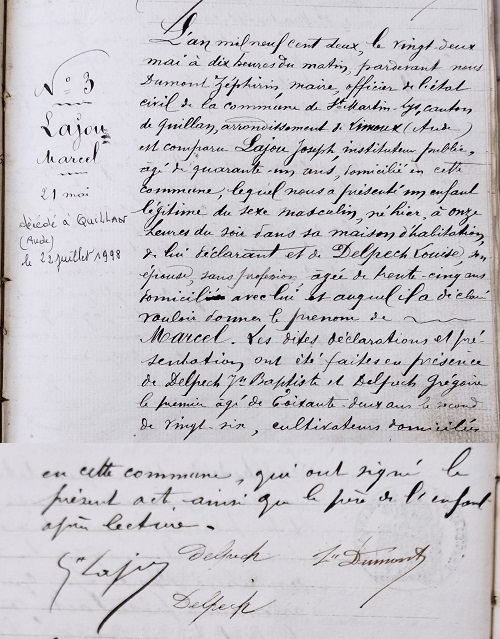 N° 3
Lajou
Marcel
21 mai
décédé à QUILLAN
(Aude)
le 22 juillet 1998
L'an mil neuf cent deux, le vingt-deux
mai à dix heures du matin, pardevant nous
Dumont Zéphirin, maire, officier de l'état
civil de la commune de St Martin-Lys, canton
de Quillan, arrondissement de Limoux (Aude)
est comparu Lajou Joseph, instituteur public,
âgé de quarante un ans, domicilié en cette
commune, lequel nous a présenté un enfant
légitime du sexe masculin, né hier, à onze
heures du soir dans sa maison d'habitation,
de lui déclarant et de Delpech Louise, son
épouse, sans profession âgée de trente-cinq ans
domiciliée avec lui et auquel il a déclaré
vouloir donner le prénom de
Marcel. Les dites déclarations et pré-
sentation, ont été faites en présence
de Delpech Jn Baptiste et Delpech Grégoire
le premier âgé de Soixante-deux ans le second
de vingt-six, cultivateurs domiciliés
en cette commune, qui ont signé le
présent acte ainsi que le père de l'enfant
après lecture.
Lajou Delpech Dumont
Delpech